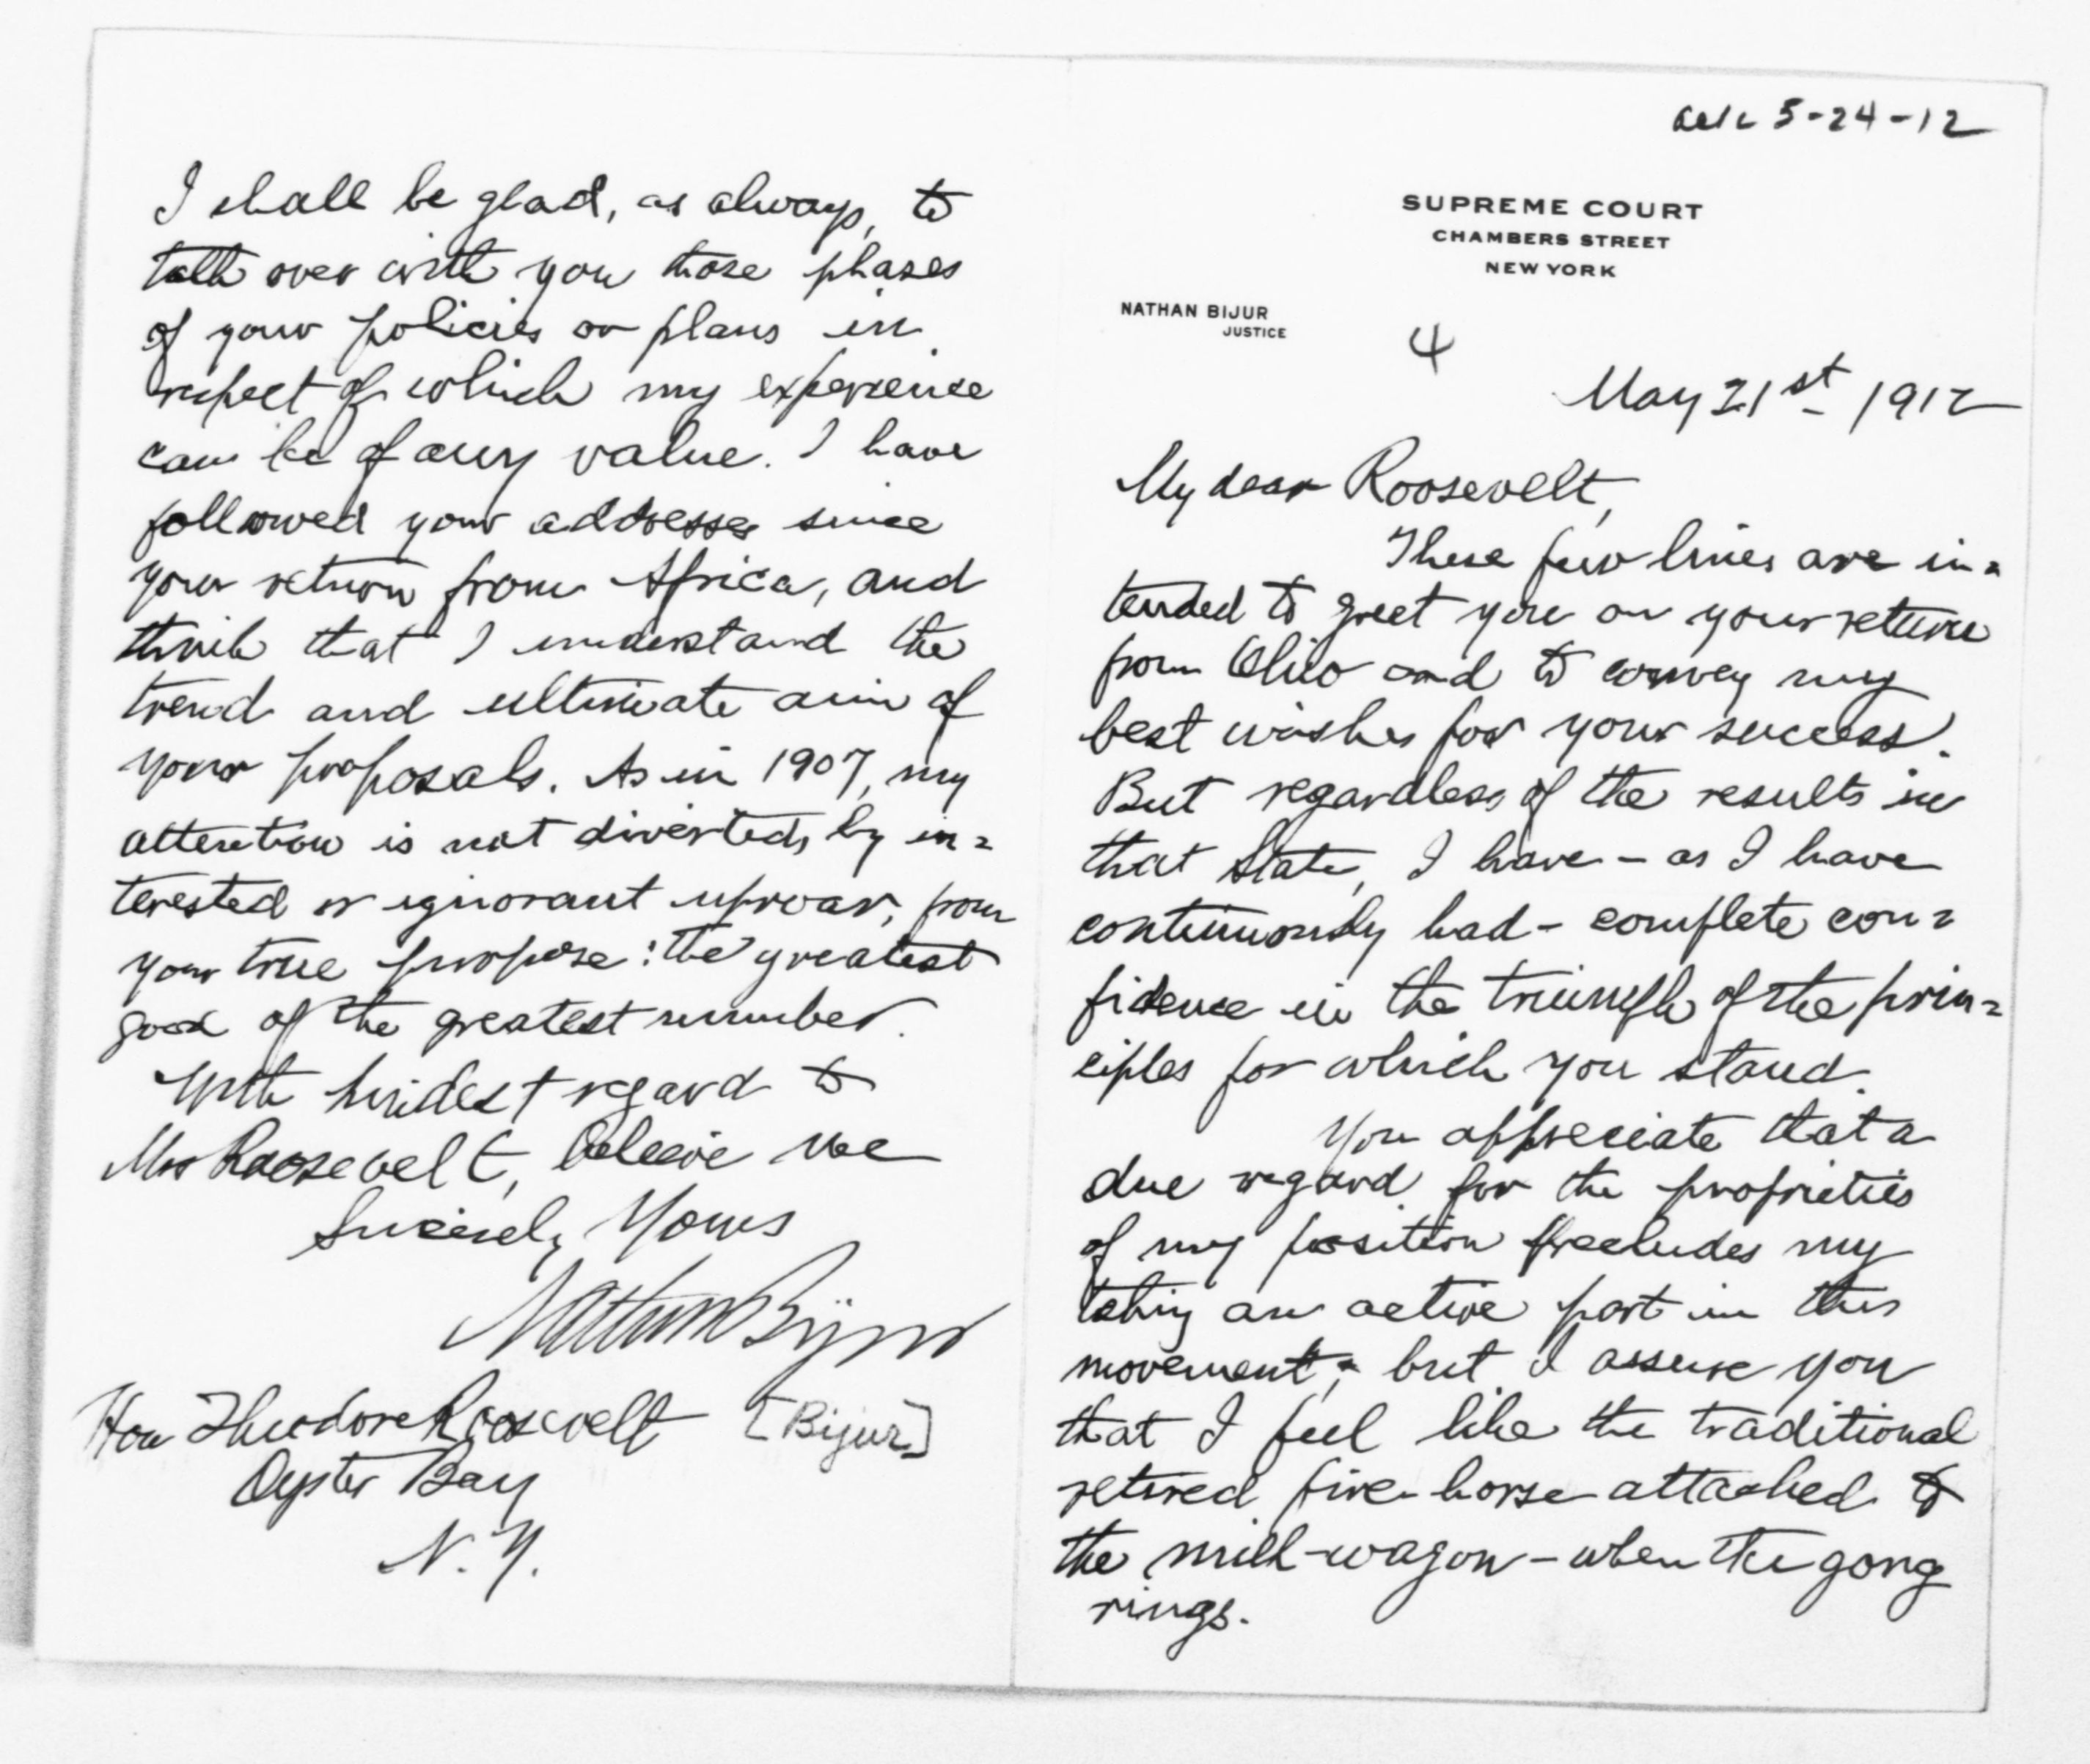 ack 5-24-12
SUPREME COURT
CHAMBERS STREET
NEW YORK
NATHAN BIJUR
JUSTICE
4
May 21st 1912
My dear Roosevelt,
These few lines are in=
tended to greet you on your return
from Ohio and to convey my
best wishes for your success.
But regardless of the results in
that State, I have – as I have
continuously had – complete con=
fidence in the triumph of the prin=
ciples for which you stand.
You appreciate that a
due regard for the proprieties
of my position precludes my
taking an active part in this
movement; but I assure you
that I feel like the traditional
retired fire-horse attached to
the milk-wagon – when the gong
rings.
I shall be glad, as always, to
talk over with you those phases
of your policies or plans in
respect of which my experience
can be of any value. I have
followed your addresses since
your return from Africa, and
think that I understand the
trend and ultimate aim of
your proposals. As in 1907, my
attention is not diverted, by in=
terested or ignorant uproar, from
your true purpose: the greatest
good of the greatest number.
With kindest regard to
Mrs Roosevelt, believe me
Sincerely Yours
Nathan Bijur
Hon Theodore Roosevelt [Bijur]
Oyster Bay
N.Y.